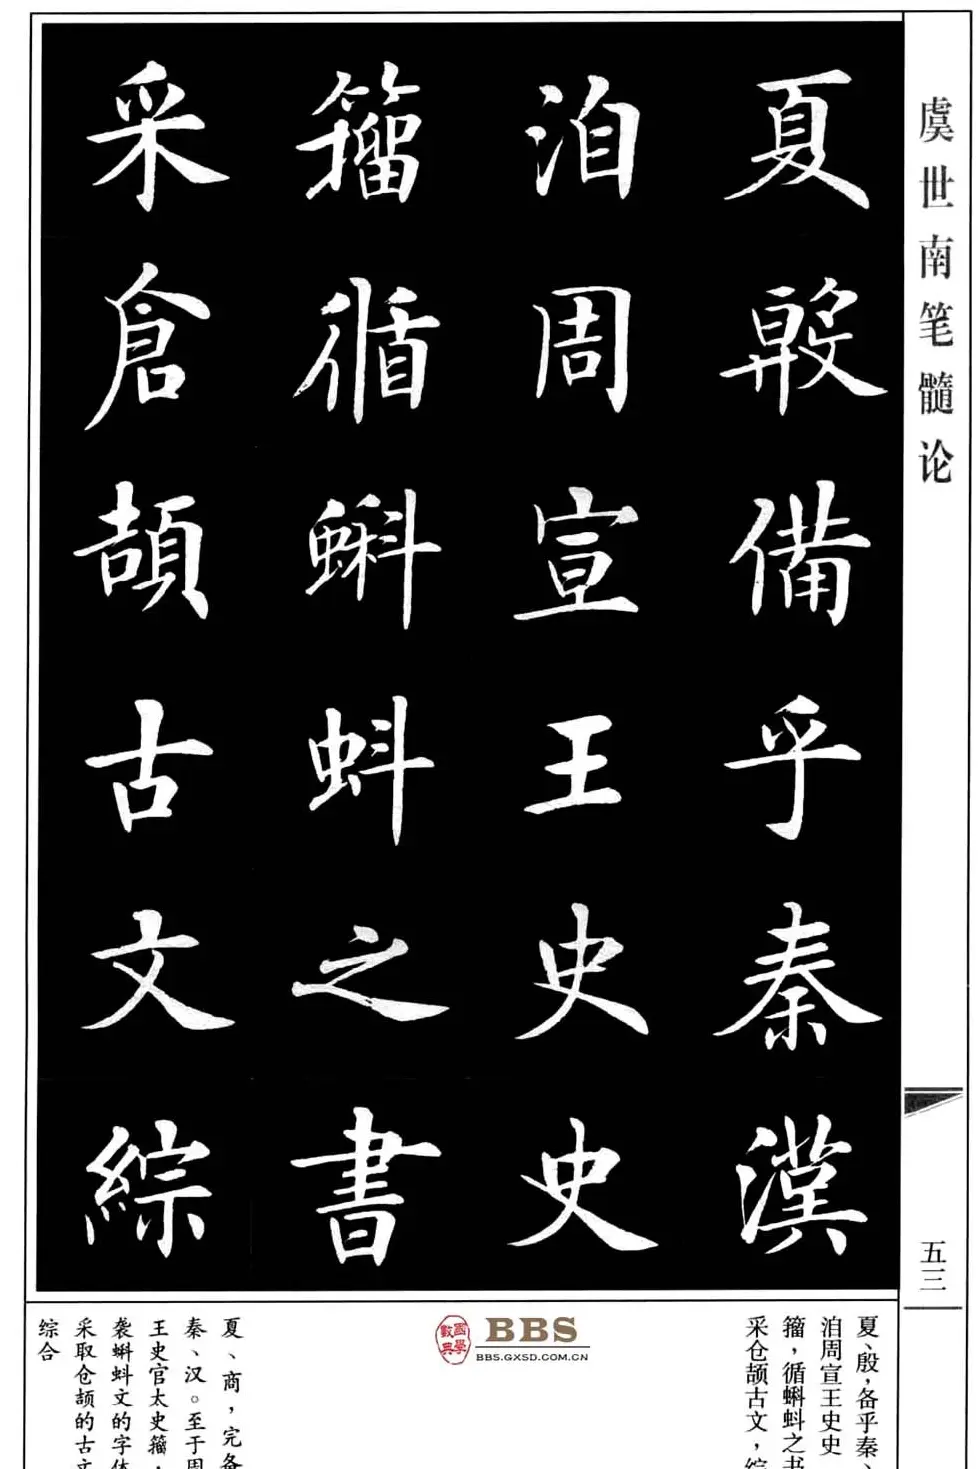 虞世南笔髓论
夏殷備乎秦漢
洎周宣王史史
籀循蝌蚪之書
采倉頡古文綜
五三
夏、殷，备乎秦、
洎周宣王史史
籀，循蝌蚪之书
采仓颉古文，综
BBS
BBS.GXSD.COM.CN
國學數典
夏、商，完备
秦、汉。至于周
王史官太史籀，
袭蝌蚪文的字体
采取仓颉的古文
综合